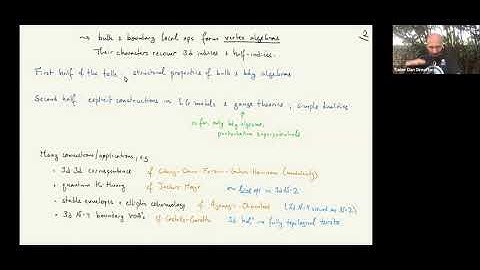 2
→ bulk & boundary local ops form vertex algebras
Their characters recover 3d indices & half-indices.
First half of the talk: structural properties of bulk & bdy algebras
Second half: explicit constructions in LG models & gauge theories, simple dualities
so far, only bdy algebras,
perturbative superpotentials
Many connections/applications, e.g.
• 3d 3d correspondence cf
• quantum K-theory cf Jockers Mayr line ops in 3d N=2
• stable envelopes & elliptic cohomology cf Aganagic-Okounkov (3d N=4 viewed as N=2)
• 3d N=4 boundary VOA's cf Costello-Gaiotto fully topological twists
Tudor Dan Dimofte